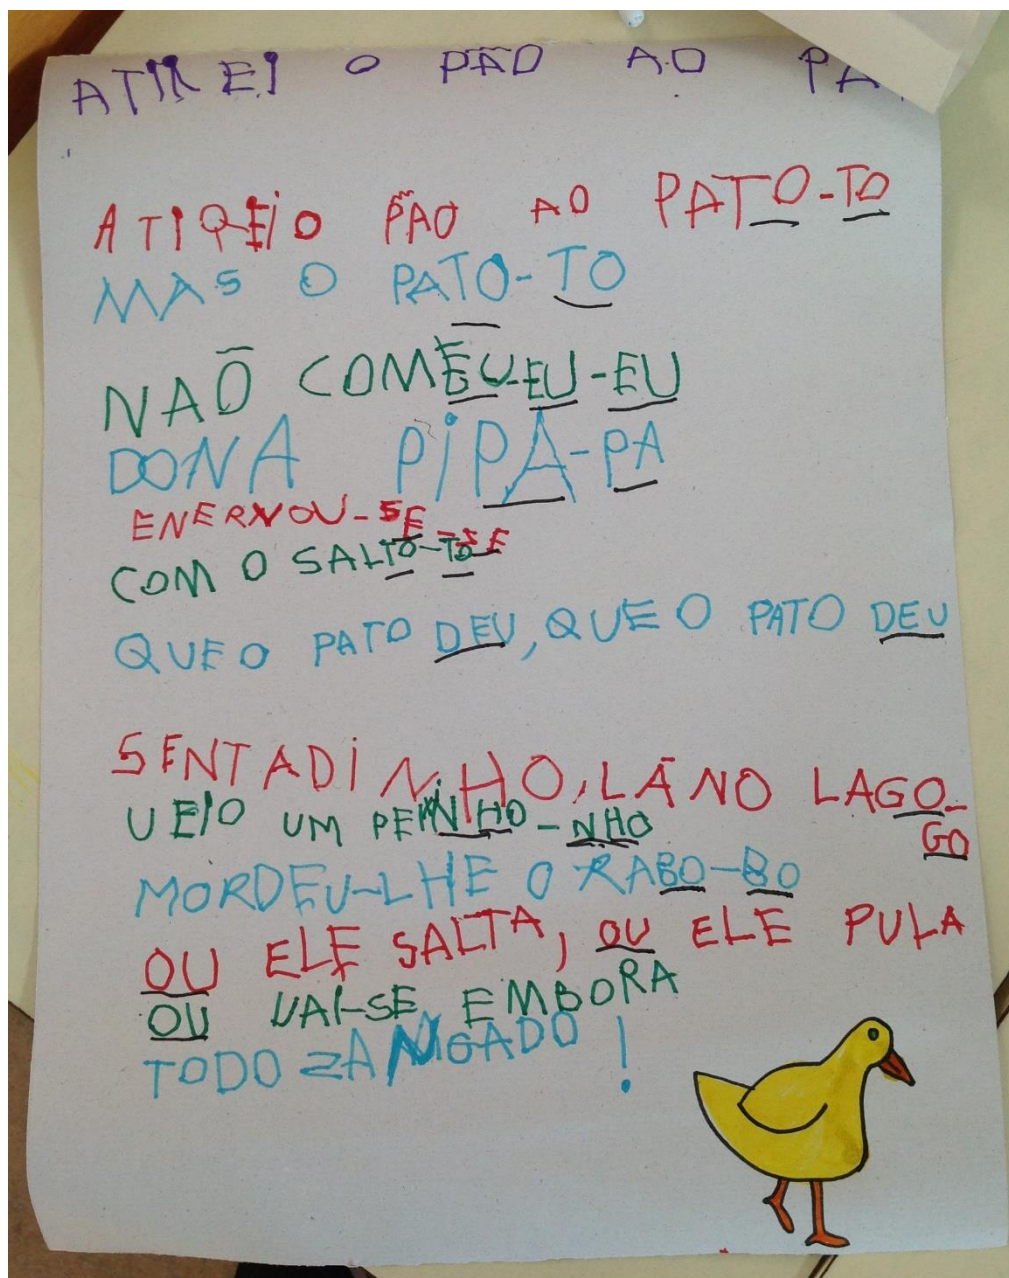 ATIREI O PÃO AO PA
ATIREI O PÃO AO PATO-TO
MAS O PATO-TO
NAÕ COMEU-EU-EU
DONA PIPA-PA
ENERVOU-SE-SE
COM O SALTO-TO
QUE O PATO DEU, QUE O PATO DEU
SENTADINHO, LÁ NO LAGO-
GO
VEIO UM PEIXINHO-NHO
MORDEU-LHE O RABO-BO
OU ELE SALTA, OU ELE PULA
OU VAI-SE EMBORA
TODO ZANGADO!